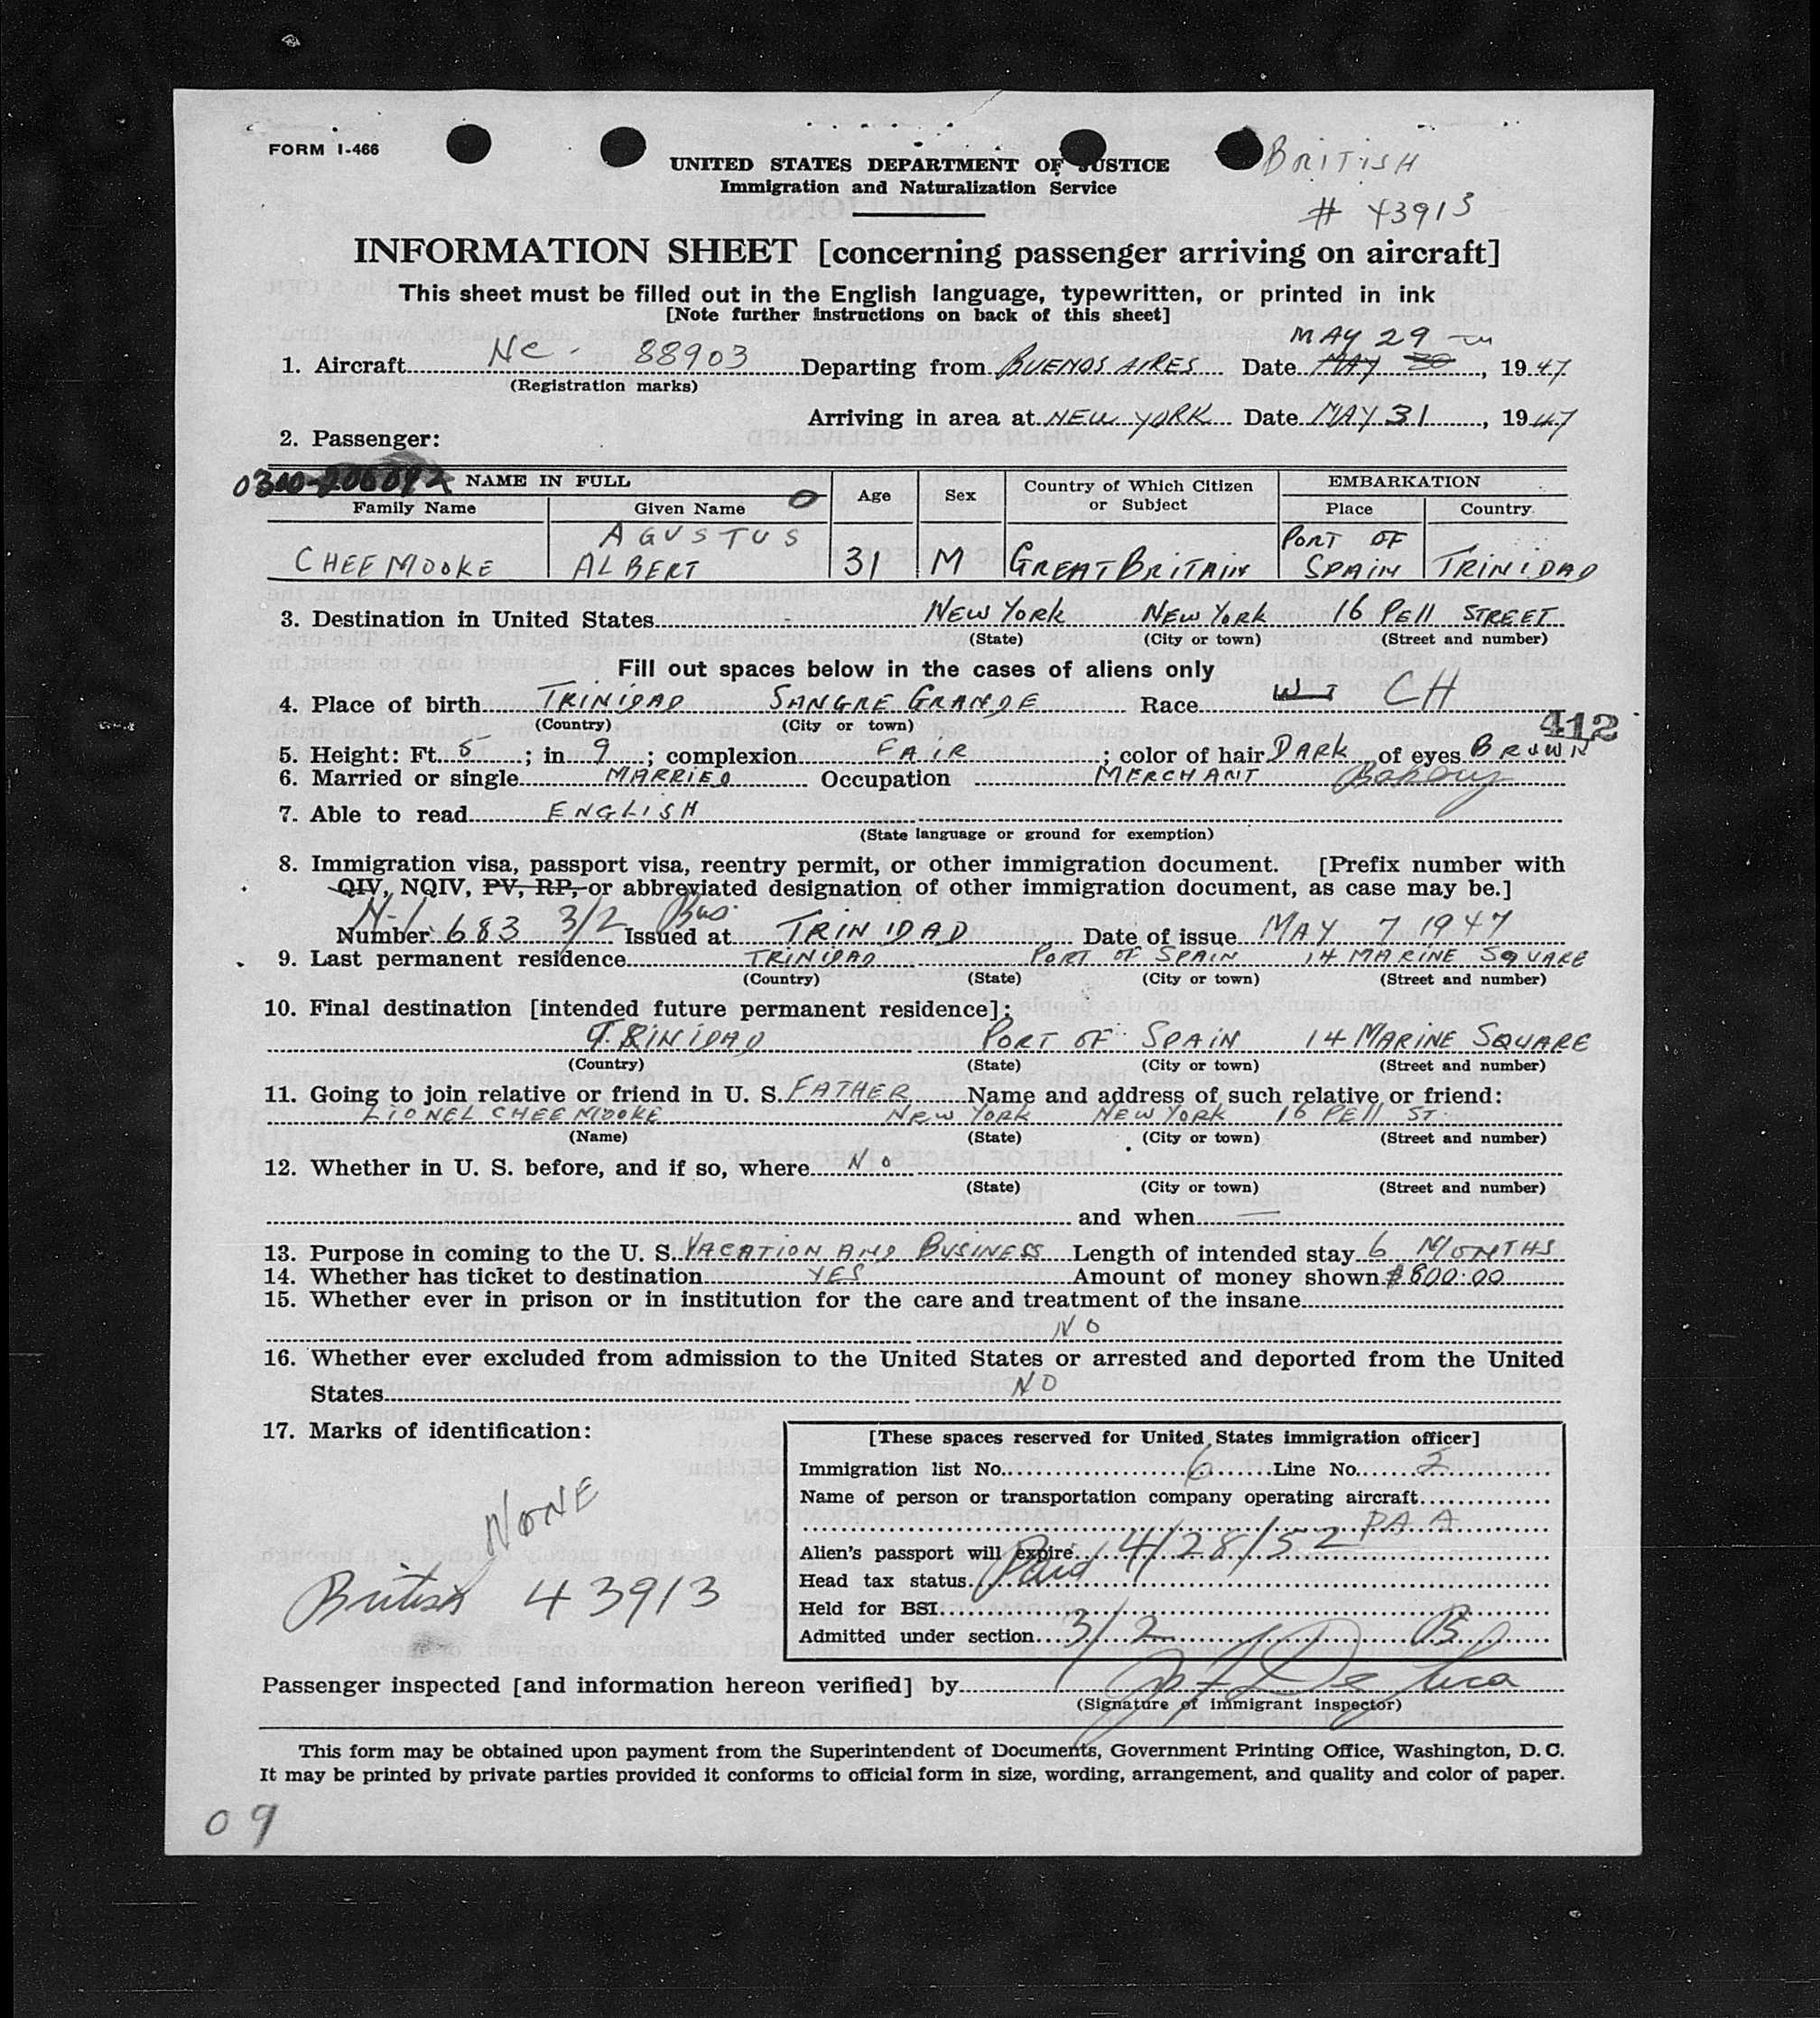 FORM I-466
UNITED STATES DEPARTMENT OF JUSTICE
BRITISH
Immigration and Naturalization Service
# 43913
INFORMATION SHEET [concerning passenger arriving on aircraft]
This sheet must be filled out in the English language, typewritten, or printed in ink
[Note further instructions on back of this sheet]
MAY 29
1. Aircraft NC - 88903 Departing from BUENOS AIRES Date MAY 30, 1947
(Registration marks)
Arriving in area at NEW YORK Date MAY 31, 1947
2. Passenger:
NAME IN FULL Age Sex Country of Which Citizen or Subject EMBARKATION
Family Name Given Name Place Country
AGUSTUS PORT OF
CHEE MOOKE ALBERT 31 M GREAT BRITAIN SPAIN TRINIDAD
3. Destination in United States NEW YORK NEW YORK 16 PELL STREET
(State) (City or town) (Street and number)
Fill out spaces below in the cases of aliens only
4. Place of birth TRINIDAD SANGRE GRANDE Race CH
(Country) (City or town)
412
5. Height: Ft. 5; in 9; complexion FAIR; color of hair DARK of eyes BROWN
6. Married or single MARRIED Occupation MERCHANT Bakery
7. Able to read ENGLISH
(State language or ground for exemption)
8. Immigration visa, passport visa, reentry permit, or other immigration document. [Prefix number with
QIV, NQIV, PV, RP, or abbreviated designation of other immigration document, as case may be.]
Number 683 3/2 Bus. Issued at TRINIDAD Date of issue MAY 7 1947
9. Last permanent residence TRINIDAD PORT OF SPAIN 14 MARINE SQUARE
(Country) (State) (City or town) (Street and number)
10. Final destination [intended future permanent residece]:
TRINIDAD PORT OF SPAIN 14 MARINE SQUARE
(Country) (State) (City or town) (Street and number)
11. Going to join relative or friend in U. S. FATHER Name and address of such relative or friend:
LIONEL CHEE MOOKE NEW YORK NEW YORK 16 PELL ST.
(Name) (State) (City or town) (Street and number)
12. Whether in U. S. before, and if so, where NO
(State) (City or town) (Street and number)
and when —
13. Purpose in coming to the U. S. VACATION AND BUSINESS Length of intended stay 6 MONTHS
14. Whether has ticket to destination YES Amount of money shown $800.00
15. Whether ever in prison or in institution for the care and treatment of the insane
NO
16. Whether ever excluded from admission to the United States or arrested and deported from the United
States NO
17. Marks of identification:
NONE
British 43913
[These spaces reserved for United States immigration officer]
Immigration list No. 6 Line No. 2
Name of person or transportation company operating aircraft
PAA
Alien's passport will expire 4/28/52
Head tax status Paid
Held for BSI
Admitted under section 3/2 B
Passenger inspected [and information hereon verified] by De Luca
(Signature of immigrant inspector)
This form may be obtained upon payment from the Superintendent of Documents, Government Printing Office, Washington, D. C.
It may be printed by private parties provided it conforms to official form in size, wording, arrangement, and quality and color of paper.
09